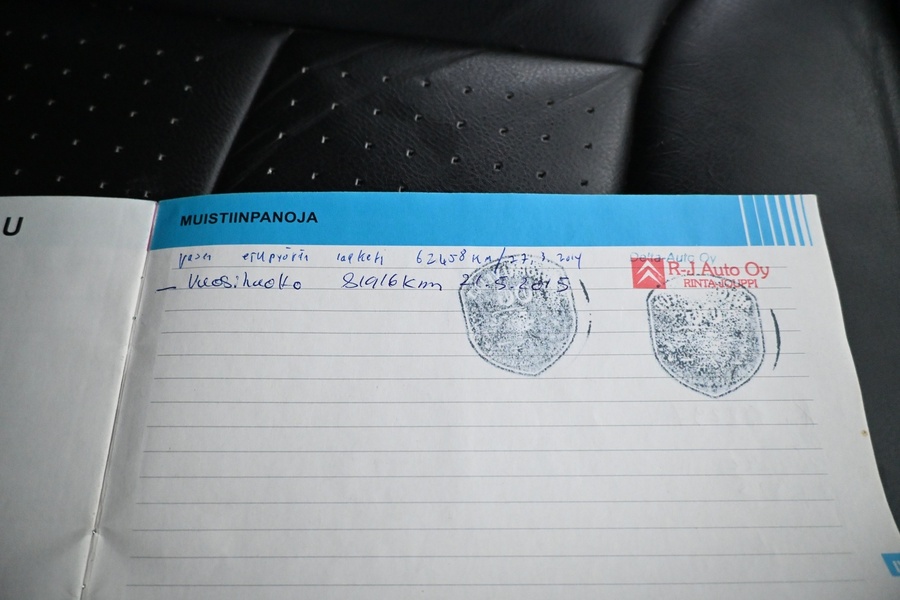 U
MUISTIINPANOJA
62458 km / 27.3.2014
Delta-Auto Oy
R-J.Auto Oy
RINTA-JOUPPI
– Vuosihuolto 81916 km 21.5.2015